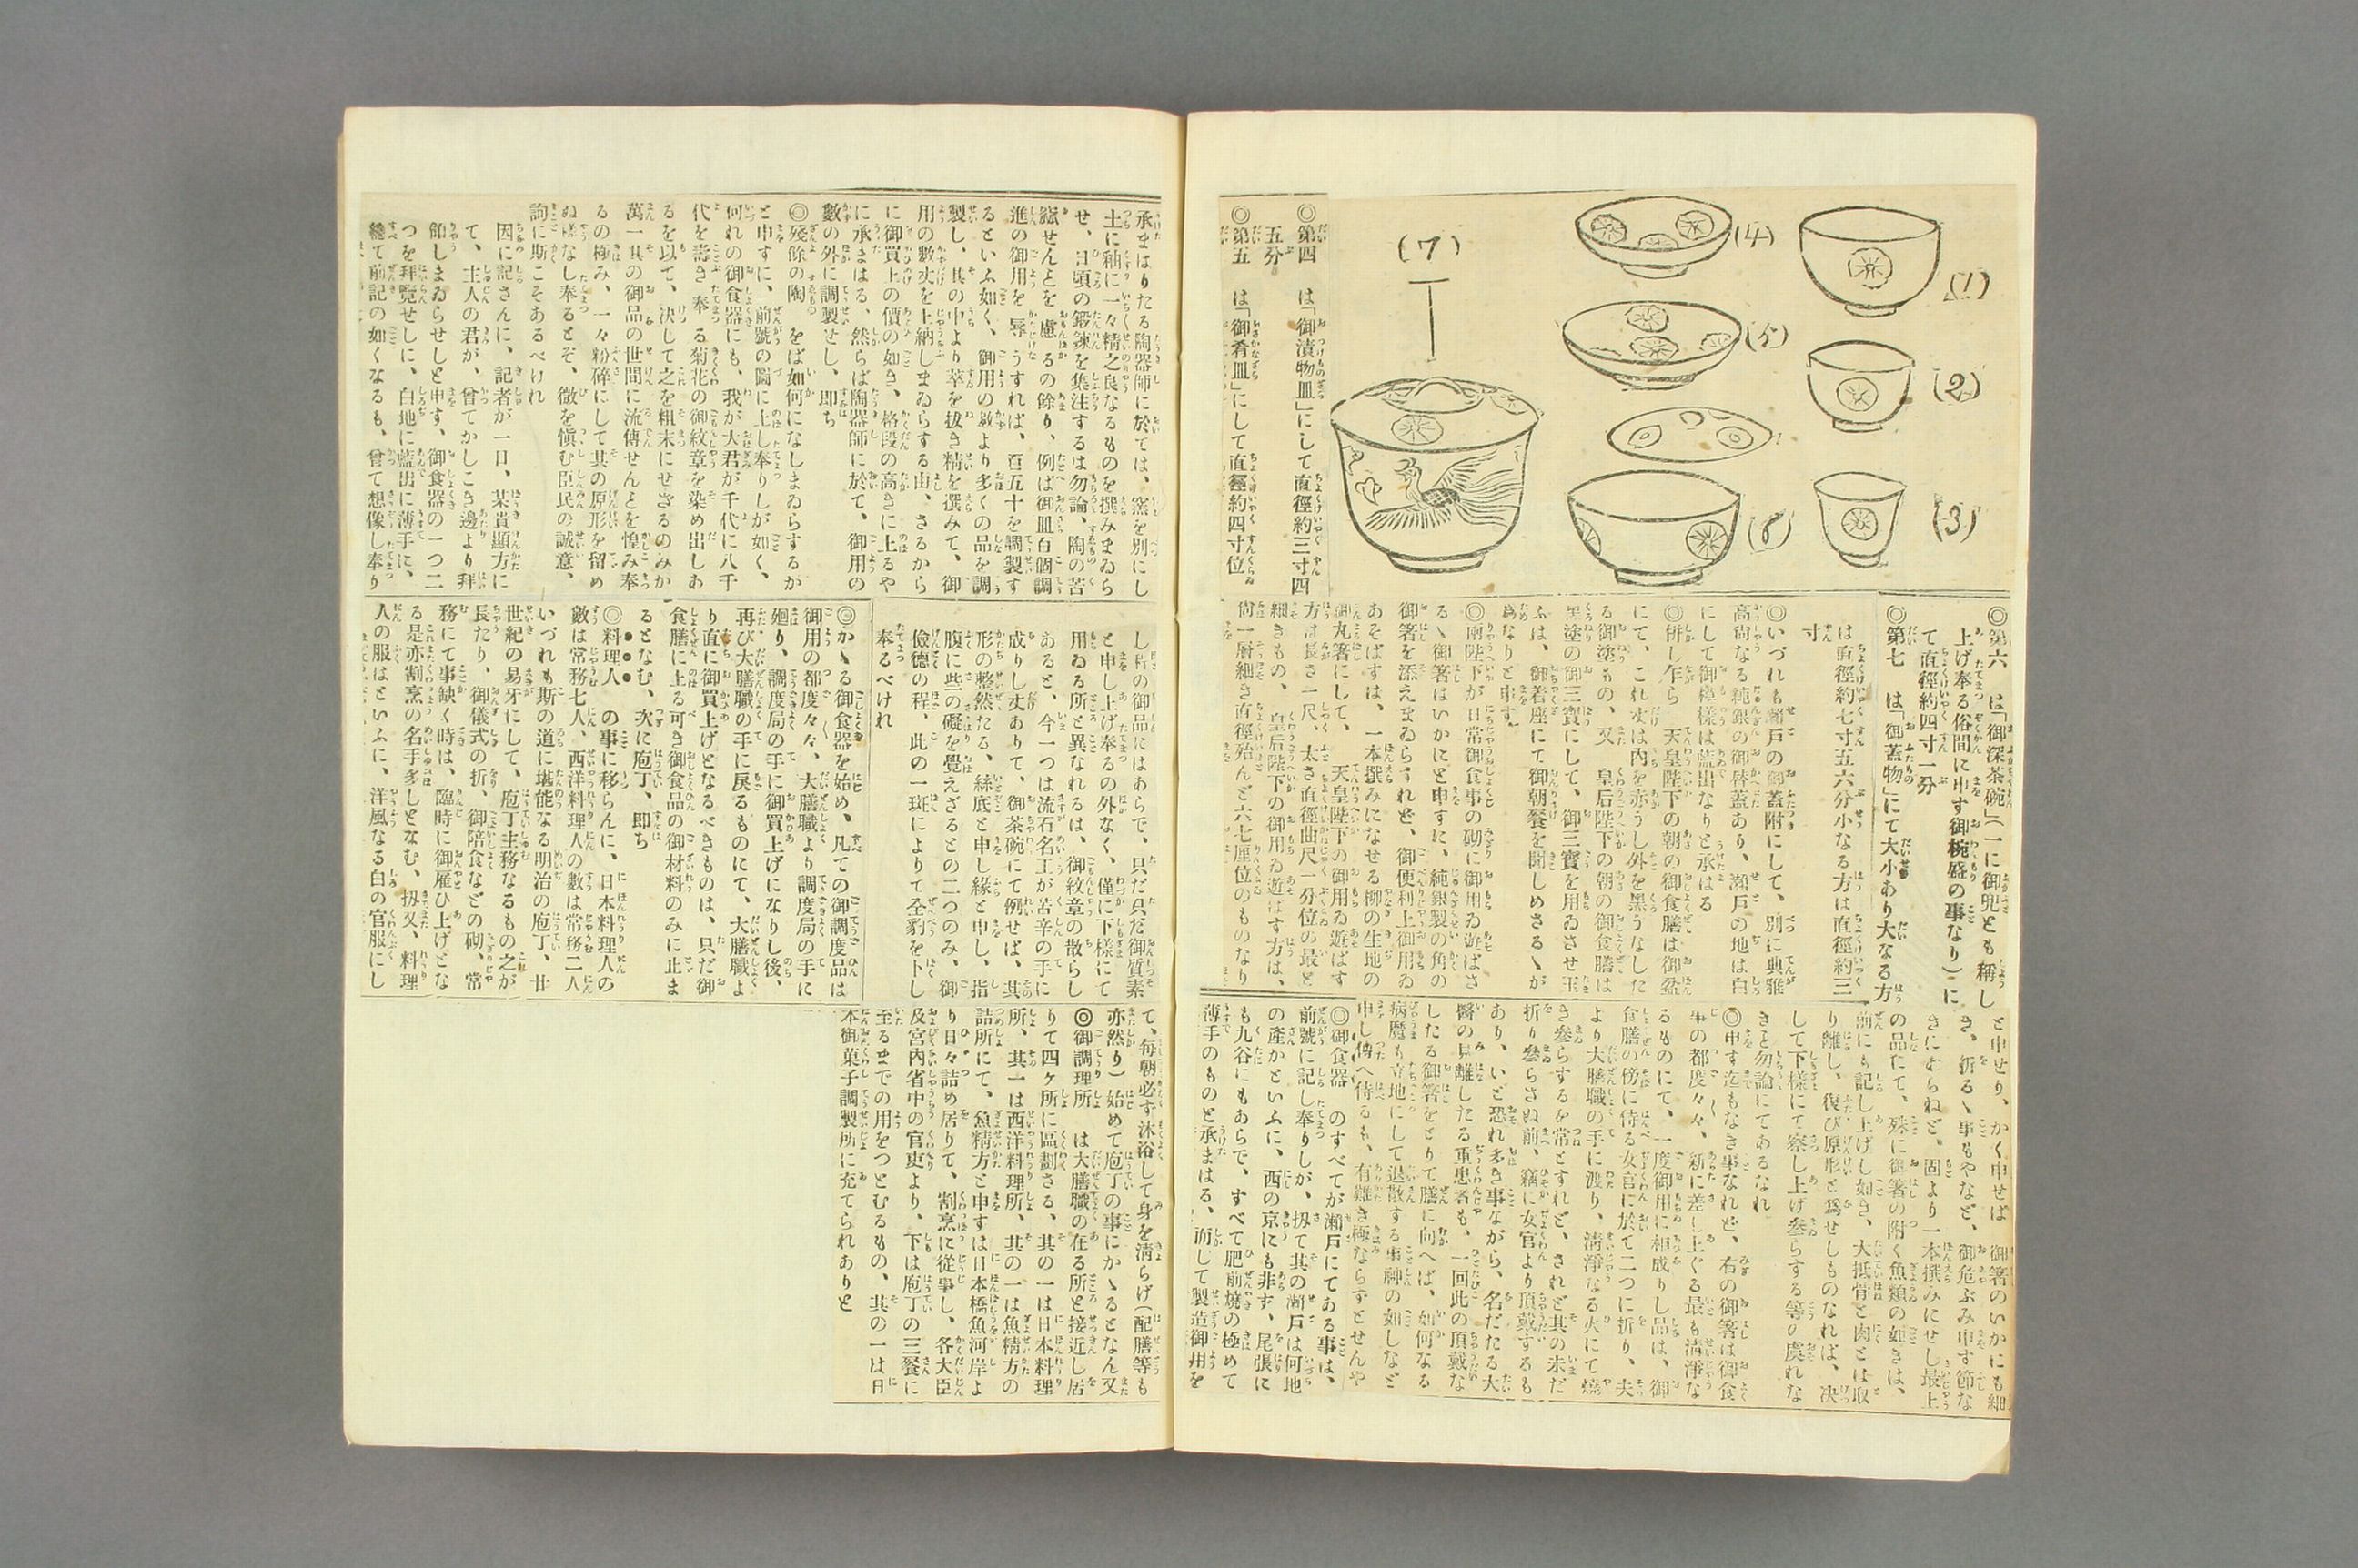 (1)
(2)
(3)
(4)
(5)
(6)
(7)
◎第四 は「御漬物皿」にして直徑約三寸四
五分
◎第五 は「御肴皿」にして直徑約四寸位
◎第六 は「御深茶碗」(一に御兜とも稱し
上げ奉る俗間に申す御椀盛の事なり)に
て直徑約四寸一分
◎第七 は「御蓋物」にて大小あり大なる方
は直徑約七寸五六分小なる方は直徑約三
寸
◎いづれも瀬戸の御蓋附にして、別に典雅
高尚なる純銀の御替蓋あり、瀬戸の地は白
にして御模樣は藍出なりと承はる
◎併し乍ら 天皇陛下の朝の御食膳は御盆
にて、これ丈は内を赤うし外を黑うなした
る御塗もの、又 皇后陛下の朝の御食膳は
黑塗の御三寶にして、御三寶を用ゐさせ玉
ふは、御着座にて御朝餐を聞しめさるゝが
爲なりと申す
◎兩陛下が日常御食事の砌に御用ゐ遊ばさ
るゝ御箸はいかにと申すに、純銀製の角の
御箸を添えまゐらすれど、御便利上御用ゐ
あそばすは、一本撰みになせる柳の生地の
御丸箸にして、 天皇陛下の御用ゐ遊ばす
方は長さ一尺、太さ直徑曲尺一分位の最と
細きもの、 皇后陛下の御用ゐ遊はす方は、
尚一層細き直徑殆んど六七厘位のものなり
と申せり、かく申せば 御箸のいかにも細
き、折るゝ事もやなど、御危ぶみ申す節な
きにあらねど、固より一本撰みにせし最上
の品にて、殊に御箸の附く魚類の如きは、
前にも記し上げし如き、大抵骨と肉とは取
り離し、復び原形と爲せしものなれば、决
して下樣にて察し上げ參らする等の虞れな
きと勿論にてあるなれ
◎申す迄もなき事なれど、右の御箸は御食
事の都度々々、新に差し上ぐる最も淸淨な
るものにて、一度御用に相成りし品は、御
食膳の傍に侍る女官に於て二つに折り、夫
より大膳職の手に渡り、淸淨なる火にて燒
き參らするを常とすれど、されど其の未だ
折り參らさぬ前、竊に女官より頂戴するも
あり、いと恐れ多き事ながら、名だたる大
醫の見離したる重患者も、一回此の頂戴な
したる御箸をとりて膳に向へば、如何なる
病魔も立地にして退散する事神の如しなど
申し傳へ侍るも、有難き極ならずとせんや
◎御食器 のすべてが瀬戸にてある事は、
前號に記し奉りしが、扨て其の瀬戸は何地
の產かといふに、西の京にも非す、尾張に
も九谷にもあらで、すべて肥前燒の極めて
薄手のものと承まはる、而して製造御用を
承まはりたる陶器師に於ては、窯を別にし
土に釉に一々精之良なるものを撰みまゐら
せ、日頃の鍛鍊を集注するは勿論、陶の苦
窳せんとを 慮 るの餘り、例ば御皿百個調
進の御用を 辱 うすれば、百五十を調製す
るといふ如く、御用の數より多くの品を調
製し、其の中より萃を拔き精を撰みて、御
用の數丈を上納しまゐらする由、さるから
に御買上の價の如き、格段の高きに上るや
に承まはる、然らば陶器師に於て、御用の
數の外に調製せし、即ち
◎殘餘の陶 をば如何になしまゐらするか
と申すに、前號の圖に上し奉りしが如く、
何れの御食器にも、我が大君が千代に八千
代を壽き奉 る菊花の御紋章を染め出しあ
るを以て、決して之を粗末にせさるのみか
萬一其の御品の世間に流傳せんとを惶み奉
るの極み、一々粉碎にして其の原形を留め
ぬ樣なし奉るとぞ、微を愼む臣民の誠意、
詢に斯こそあるべけれ
因に記さんに、記者が一日、某貴顯方に
て、主人の君が、曾てかしこき邊より拜
領しまゐらせしと申す、御食器の一つ二
つを拜覽せしに、白地に藍出に薄手に、
總て前記の如くなるも、曾て想像し奉り
し若の御品にはあらで、只だ只だ御質素
と申し上げ奉るの外なく、僅に下樣にて
用ゐる所と異なれるは、御紋章の散らし
あると、今一つは流石名工が苦辛の手に
成りし丈ありて、御茶碗にて例せば、其
形の整然たる、絲底と申し緣と申し、指
腹に些の礙を覺えざるとの二つのみ、御
儉德の程、此の一斑によりて全豹を卜し
奉るべけれ
◎かゝる御食器を始め、凡ての御調度品は
御用の都度々々、大膳職より調度局の手に
廻り、調度局の手に御買上げになりし後、
再び大膳職の手に戾るものにて、大膳職よ
り直に御買上げとなるべきものは、只だ御
食膳に上る可き御食品の御材料のみに止ま
るとなむ、次に庖丁、即ち
◎料理人 の事に移らんに、日本料理人の
數は常務七人、西洋料理人の數は常務二人
いづれも斯の道に堪能なる明治の庖丁、廿
世紀の易牙にして、庖丁主務なるもの之が
長たり、御儀式の折、御陪食などの砌、常
務にて事缺く時は、臨時に御雇ひ上げとな
る是亦割烹の名手多しとなむ、扨又、料理
人の服はといふに、洋風なる白の官服にし
て、每朝必ず沐浴して身を淸らげ(配膳等も
亦然り)始めて庖丁の事にかゝるとなん又
◎御調理所 は大膳職の在る所と接近し居
りて四ヶ所に區劃さる、其の一は日本料理
所、其一は西洋料理所、其の一は魚精方の
詰所にて、魚精方と申すは日本橋魚河岸よ
り日々詰め居りて、割烹に從事し、各大臣
及宮內省中の官吏より、下は庖丁の三餐に
至るまでの用をつとむるもの、其の一は日
本御菓子調製所に充てられありと